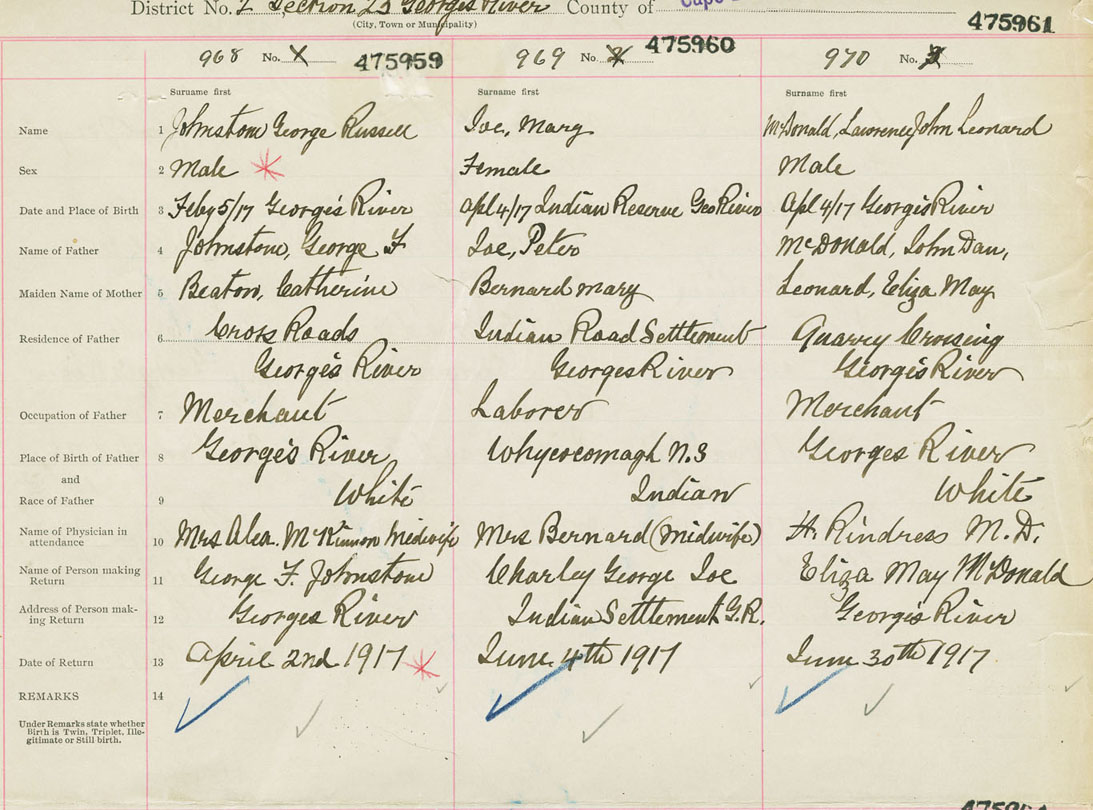 District No. 2 Section 23 Georges River County of Cape
(City, Town or Municipality)
475961
968 No. X 475959
969 No. 2 475960
970 No. 3
Surname first Surname first Surname first
Name 1 Johnstone George Russell
Joe, Mary
McDonald, Lawrence John Leonard
Sex 2 Male
Female
Male
Date and Place of Birth 3 Feby 5/17 George's River
Apl 4/17 Indian Reserve Geo River
Apl 4/17 George's River
Name of Father 4 Johnstone, George F
Joe, Peter
McDonald, John Dan,
Maiden Name of Mother 5 Beaton, Catherine
Bernard Mary
Leonard, Eliza May
Residence of Father 6 Cross Roads
George's River
Indian Road Settlement
Georges River
Quarry Crossing
George's River
Occupation of Father 7 Merchant
Laborer
Merchant
Place of Birth of Father 8 George's River
Whycocomagh N.S
Georges River
and
Race of Father 9 White
Indian
White
Name of Physician in
attendance 10 Mrs Alex. McKinnon Midwife
Mrs Bernard (Midwife)
H. Rindress M.D.
Name of Person making
Return 11 George F. Johnstone
Charley George Joe
Eliza May McDonald
Address of Person mak-
ing Return 12 Georges River
Indian Settlement G.R.
George's River
Date of Return 13 April 2nd 1917
June 4th 1917
June 30th 1917
REMARKS 14
Under Remarks state whether
Birth is Twin, Triplet, Ille-
gitimate or Still birth.